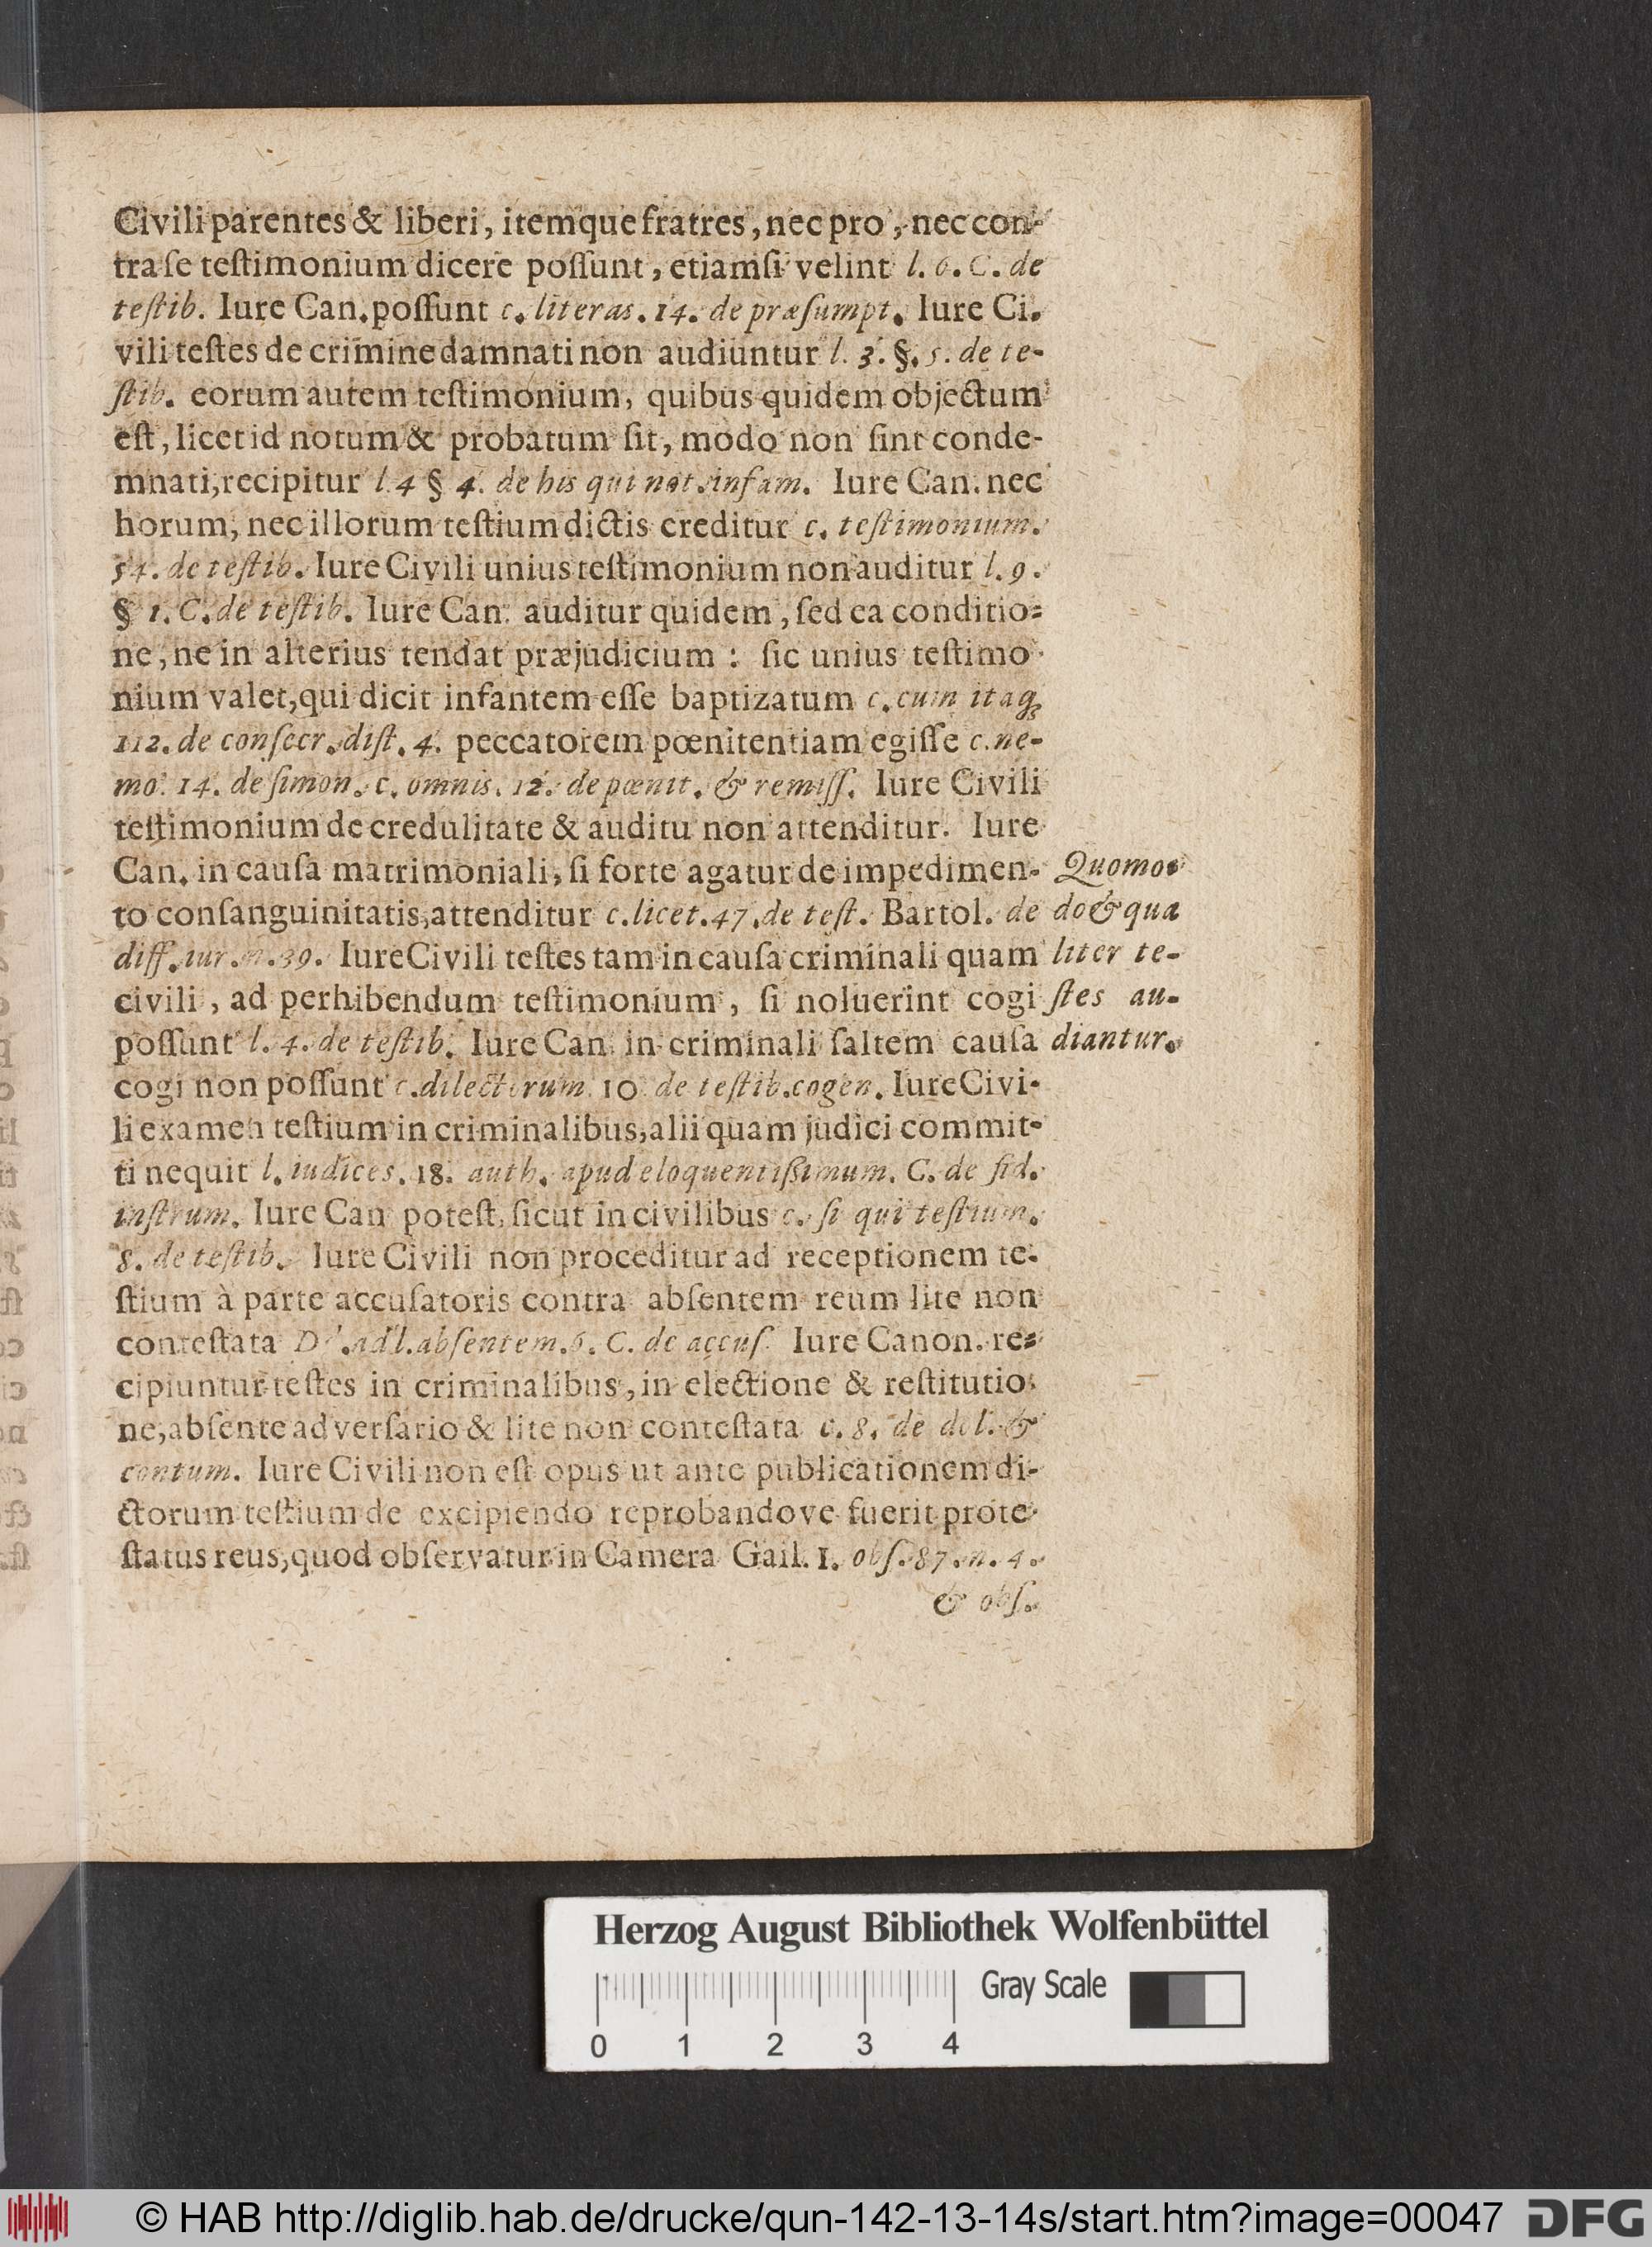 Civili parentes & liberi, itemque fratres, nec pro, nec con-
tra ſe teſtimonium dicere poſſunt, etiamſi velint l. 6. C. de
teſtib. Iure Can. poſſunt c. literas. 14. de præſumpt. Iure Ci-
vili teſtes de crimine damnati non audiuntur l. 3. §. 5. de te-
ſtib. eorum autem teſtimonium, quibus quidem objectum
eſt, licet id notum & probatum ſit, modo non ſint conde-
mnati, recipitur l. 4 § 4. de his qui not. infam. Iure Can. nec
horum, nec illorum teſtium dictis creditur c. teſtimonium.
54. de teſtib. Iure Civili unius teſtimonium non auditur l. 9.
§ 1. C. de teſtib. Iure Can. auditur quidem, ſed ea conditio-
ne, ne in alterius tendat præjudicium : ſic unius teſtimo-
nium valet, qui dicit infantem eſſe baptizatum c. cum itaq;
112. de conſecr. diſt. 4. peccatorem pœnitentiam egiſſe c. ne-
mo. 14. de ſimon. c. omnis. 12. de pœnit. & remiſſ. Iure Civili
teſtimonium de credulitate & auditu non attenditur. Iure
Can. in cauſa matrimoniali, ſi forte agatur de impedimen-
to conſanguinitatis, attenditur c. licet. 47. de teſt. Bartol. de
diff. iur. n. 39. Iure Civili teſtes tam in cauſa criminali quam
civili, ad perhibendum teſtimonium, ſi noluerint cogi
poſſunt l. 4. de teſtib. Iure Can. in criminali ſaltem cauſa
cogi non poſſunt c. dilectorum. 10. de teſtib. cogen. Iure Civi-
li examen teſtium in criminalibus, alii quam judici commit-
ti nequit l. iudices. 18. auth. apud eloquentiſſimum. C. de fid.
inſtrum. Iure Can. poteſt, ſicut in civilibus c. ſi qui teſtium.
8. de teſtib. Iure Civili non proceditur ad receptionem te-
ſtium à parte accuſatoris contra abſentem reum lite non
conteſtata ad l. abſentem. 6. C. de accuſ. Iure Canon. re-
cipiuntur teſtes in criminalibus, in electione & reſtitutio-
ne, abſente adverſario & lite non conteſtata c. 8. de dol. &
contum. Iure Civili non eſt opus ut ante publicationem di-
ctorum teſtium de excipiendo reprobandove fuerit prote-
ſtatus reus, quod obſervatur in Camera Gail. 1. obſ. 87. n. 4.
& obſ.
Quomo-
do & qua
liter te-
ſtes au-
diantur.
Herzog August Bibliothek Wolfenbüttel
Gray Scale
0 1 2 3 4
© HAB http://diglib.hab.de/drucke/qun-142-13-14s/start.htm?image=00047
DFG